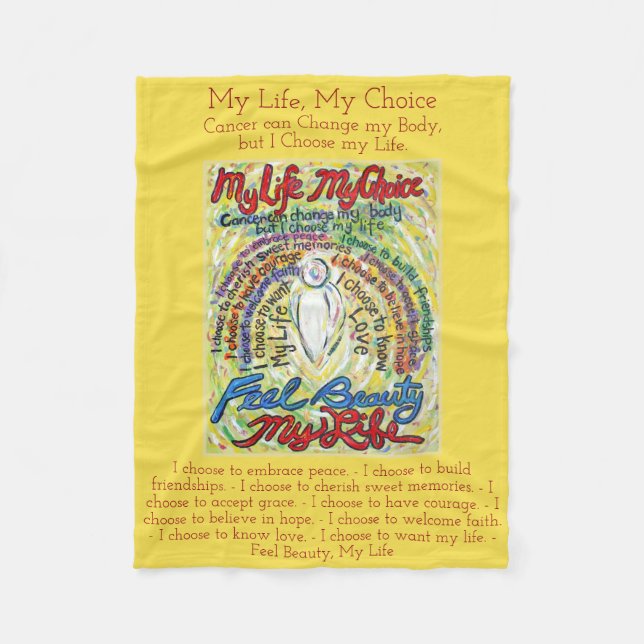 My Life, My Choice
Cancer can Change my Body,
but I Choose my Life.
My Life My Choice
Cancer can change my body
but I choose my life
I choose to embrace peace
I choose to cherish sweet memories
I choose to have courage
I choose to welcome faith
I choose to want
My Life
I choose to build friendships
I choose to accept grace
I choose to believe in hope
I choose to know
Love
Feel Beauty
My Life
I choose to embrace peace. - I choose to build
friendships. - I choose to cherish sweet memories. - I
choose to accept grace. - I choose to have courage. - I
choose to believe in hope. - I choose to welcome faith.
- I choose to know love. - I choose to want my life. -
Feel Beauty, My Life